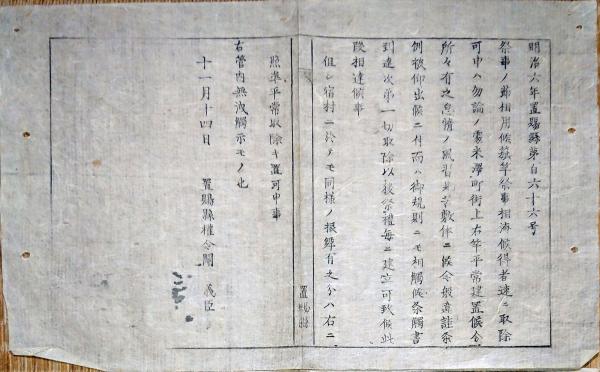 明治六年置賜縣第百六十六号
祭事ノ節相用候籏竿祭事相済候得者速ニ取除
可申ハ勿論ノ處米澤町街上右竿平常建置候分
所々有之怠惰ノ風習甚苦敷件ニ候今般違註条
例被仰出候ニ付而ハ御規則ニモ相觸候条觸書
到達次第一切取除以後祭禮毎ニ建立可致候此
段相達候事
但シ宿村ニ於テモ同様ノ振舞有之分ハ右ニ
置賜縣
照準平常取除キ置可申事
右管内無洩觸示モノ也
十一月十四日
置賜縣權令關義臣